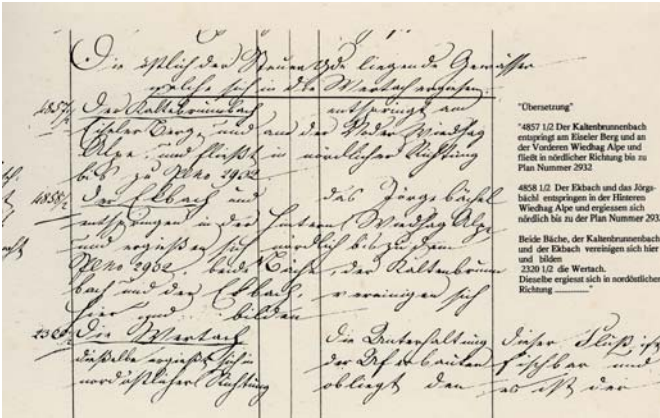 Die östlich der Steuergde liegende Gewässer
welche sich in die Wertach ergehen.
4857 1/2 Der Kaltebrunnbach entspringt am
Eiseler Berg, und an der Voder Wiedhag
Alpe, und fließt in nördlicher Richtung
bis zu PlNo 2932
4858 1/2 Der Ekbach und das Jörgebächel
entspringen in der hintern Wiedhag Alpe,
und ergießen sich nördlich bis zu dem
PlNo 2932, beide Bäche, der Kaltenbrunn
bach und der Ekbach, vereinigen sich
hier und bilden
2320 1/2 Die Wertach die Unterhaltung dieser Fluß ist
dieselbe ergießt sich in der Uferbauten fischbar und
nordöstlicher Richtung obliegt den es ist der
"Übersetzung"
"4857 1/2 Der Kaltenbrunnenbach
entspringt am Eiseler Berg und an
der Vorderen Wiedhag Alpe und
fließt in nördlicher Richtung bis zu
Plan Nummer 2932
4858 1/2 Der Ekbach und das Jörgs-
bächl entspringen in der Hinteren
Wiedhag Alpe und ergiessen sich
nördlich bis zu der Plan Nummer 293
Beide Bäche, der Kaltenbrunnenbach
und der Ekbach vereinigen sich hier
und bilden
2320 1/2 die Wertach.
Dieselbe ergiesst sich in nordöstlicher
Richtung ..........."